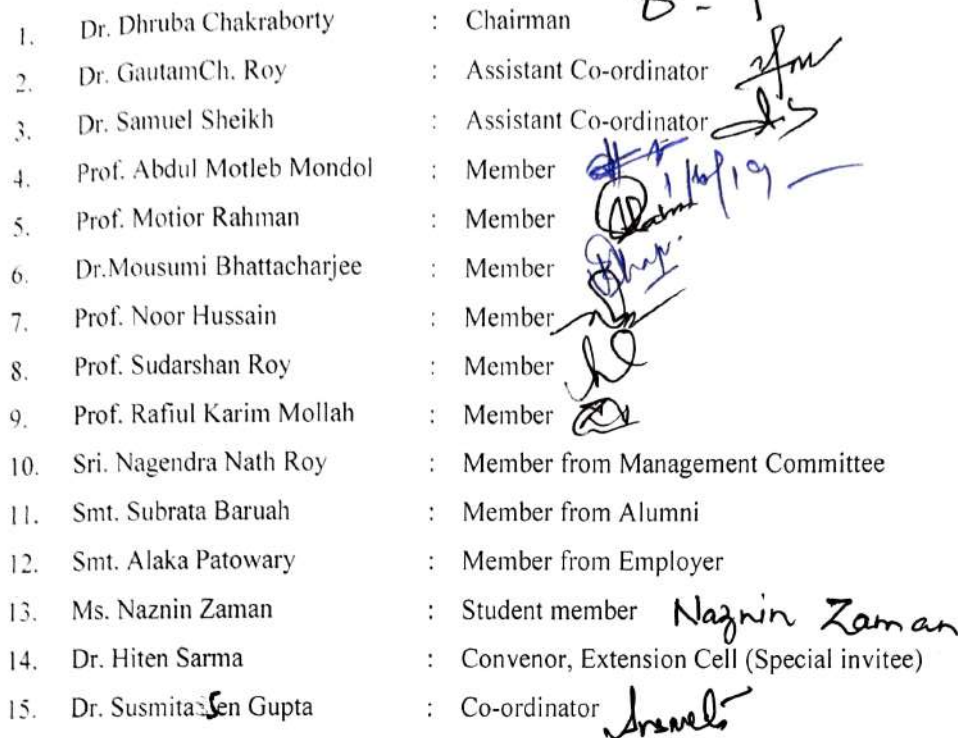 1. Dr. Dhruba Chakraborty : Chairman
2. Dr. GautamCh. Roy : Assistant Co-ordinator
3. Dr. Samuel Sheikh : Assistant Co-ordinator
4. Prof. Abdul Motleb Mondol : Member
5. Prof. Motior Rahman : Member
6. Dr.Mousumi Bhattacharjee : Member
7. Prof. Noor Hussain : Member
8. Prof. Sudarshan Roy : Member
9. Prof. Rafiul Karim Mollah : Member
10. Sri. Nagendra Nath Roy : Member from Management Committee
11. Smt. Subrata Baruah : Member from Alumni
12. Smt. Alaka Patowary : Member from Employer
13. Ms. Naznin Zaman : Student member Naznin Zaman
14. Dr. Hiten Sarma : Convenor, Extension Cell (Special invitee)
15. Dr. Susmita Sen Gupta : Co-ordinator